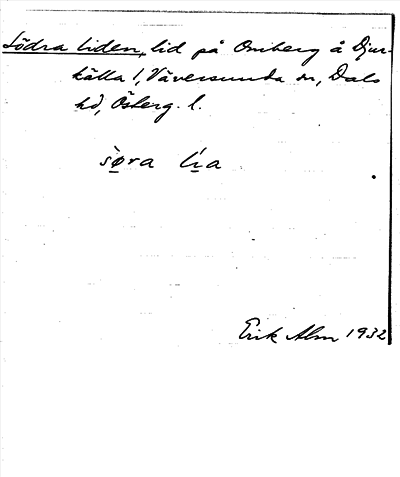 Södra Liden, lid på Omberg å Djur-
källa 1, Väversunda sn, Dals
hd, Österg. l.
sø̀ra lı́a
Erik Alm 1932